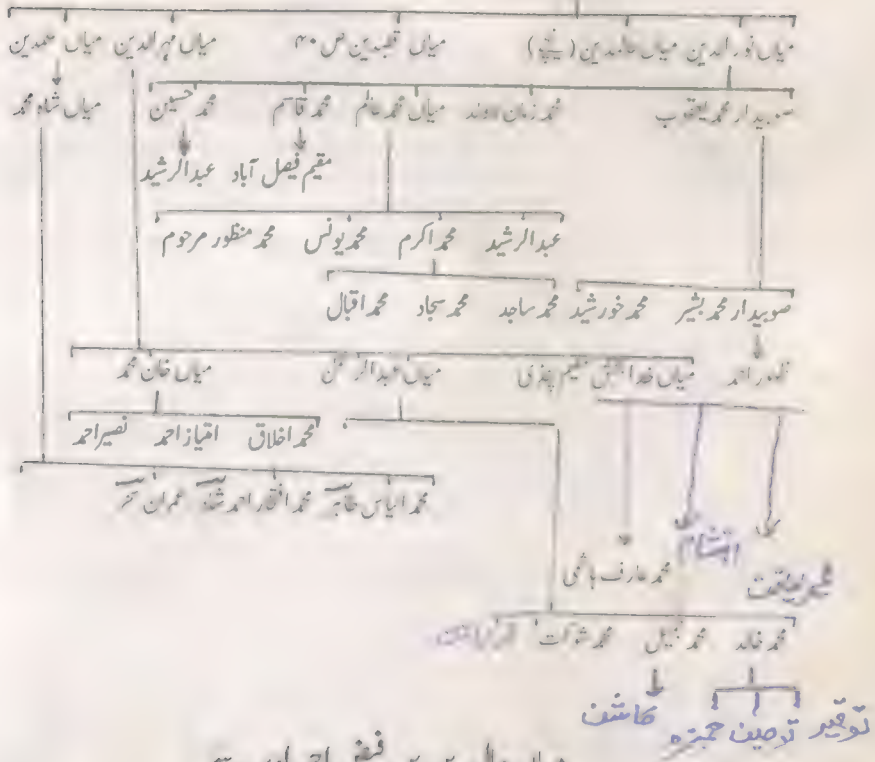 میاں نور الدین میاں عالمدین میاں قطبدین ص ۴۰ میاں مہر الدین میاں محمدین
صوبیدار محمد یعقوب محمد زمان لاولد میاں محمد عالم محمد قاسم محمد حسین میاں شاہ محمد
مقیم فیصل آباد عبدالرشید
عبدالرشید محمد اکرم محمد یونس محمد منظور مرحوم
صوبیدار محمد بشیر محمد خورشید محمد ساجد محمد سجاد محمد اقبال
ظہور احمد میاں خدا بخش مقیم پنڈی میاں عبدالرحمٰن میاں خان محمد
محمد اخلاق امتیاز احمد نصیر احمد
محمد الیاس طاہر محمد افتخار احمد عمران
محمد عارف ہاشمی
محمد خالد محمد جمیل محمد شوکت
توقیر توصیف حمزہ کاشف
فیض